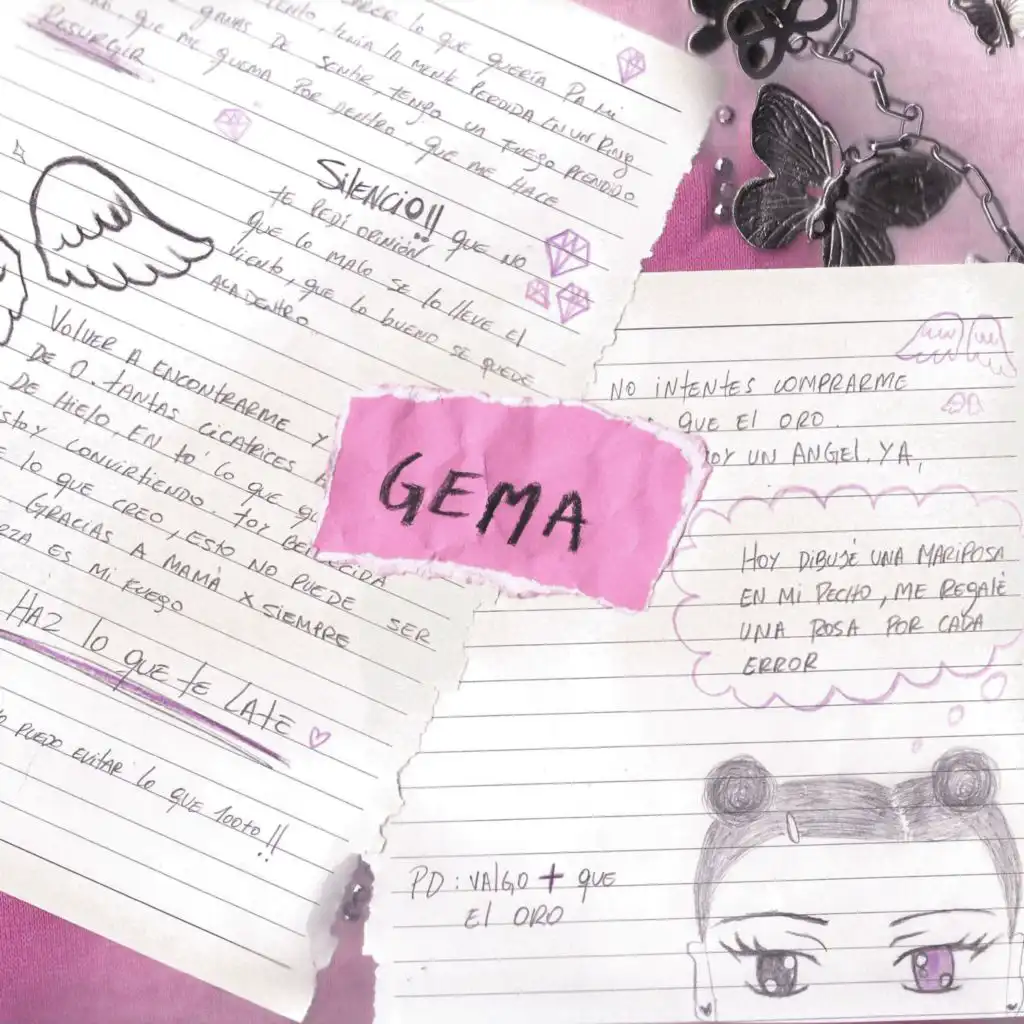 lo que quería pa mi
tenía la mente perdida en un ring
ganas de sentir, tengo un fuego prendido
que me quema por dentro, que me hace
Resurgir
Silencio!! que no
te pedí opinión,
que lo malo se lo lleve el
viento, que lo bueno se quede
aca dentro
Volver a encontrarme y
de 0. tantas cicatrices
de hielo, en to' lo que
estoy convirtiendo. toy bendecida
lo que creo, esto no puede ser
Gracias a mamá x siempre
es mi fuego
Haz lo que te late
puedo evitar lo que 100to!!
GEMA
No intentes comprarme
que el oro
un angel. ya,
Hoy dibujé una mariposa
en mi pecho, me regalé
una rosa por cada
error
PD: valgo + que
el oro